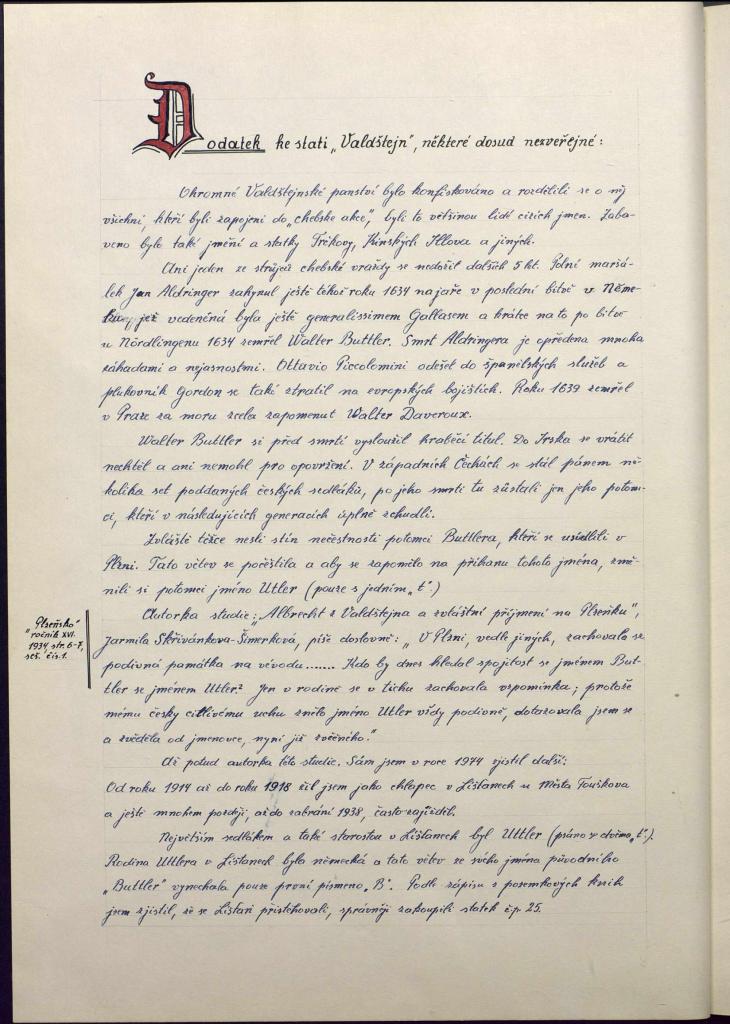 Dodatek ke stati „Valdštejn“, některé dosud nezveřejné:
Ohromné Valdštejnské panství bylo konfiskováno a rozdělili se o ně
všichni, kteří byli zapojeni do „chebske akce“, byli to většinou lidé cizích jmen. Zaba-
veno bylo také jmění a statky Trčkovy, Kinských Illova a jiných.
Ani jeden ze strůjců chebské vraždy se nedožil dalších 5 let. Polní maršá-
lek Jan Aldringer zahynul ještě téhož roku 1634 na jaře v poslední bitvě v Něme-
již vedeněná byla ještě generalissimem Gallasem a krátce na to po bitvě
u Nördlingenu 1634 zemřel Walter Buttler. Smrt Aldringera je opředena mnoha
záhadami a nejasnostmi. Ottavio Piccolomini odešel do španělských služeb a
plukovník Gordon se také ztratil na evropských bojištích. Roku 1639 zemřel
v Praze za moru zcela zapomenut Walter Daveroux.
Walter Buttler si před smrtí vysloužil hraběcí titul. Do Irska se vrátit
nechtěl a ani nemohl pro opovržení. V západních Čechách se stal pánem ně-
kolika set poddaných českých sedláků, po jeho smrti tu zůstali jen jeho potom-
ci, kteří v následujících generacích úplně zchudli.
Zvláště těžce nesli stín nečestnosti potomci Buttlera, kteří se usídlili v
Plzni. Tato větev se počeštila a aby se zapomělo na příhanu tohoto jména, změ-
nili si potomci jméno Utler (pouze s jedním „t“.)
Autorka studie: „Albrecht z Valdštejna a zvláštní příjmení na Plzeňsku“,
Jarmila Skřivánkova-Šimerková, píše doslovně: „V Plzni, vedle jiných, zachovala se
podivná památka na vévodu....... Kdo by dnes hledal spojitost se jménem But-
tler se jménem Utler? Jen v rodině se v tichu zachovala vzpomínka; protože
mému česky citlivému uchu znělo jméno Utler vždy podivně, dotazovala jsem se
a zvěděla od jmenovce, nyní již zvěčného.“
„Plzeňsko“
ročník XVI.
1934 str. 6-7,
seš. čís. 1.
Až potud autorka této studie. Sám jsem v roce 1974 zjistil další:
Od roku 1914 až do roku 1918 žil jsem jako chlapec v Líšťanech u Města Touškova
a ještě mnohem později, až do zabrání 1938, často zajížděl.
Největším sedlákem a také starostou v Líšťanech byl Uttler (psáno se dvěma „t“.)
Rodina Uttlera v Líšťanech byla německá a tato větev ze svého jména původního
„Buttler“ vynechala pouze první písmeno „B“. Podle zápisu z pozemkových knih
jsem zjistil, že se Líšťan přistěhovali, správněji zakoupili statek č.p. 25.